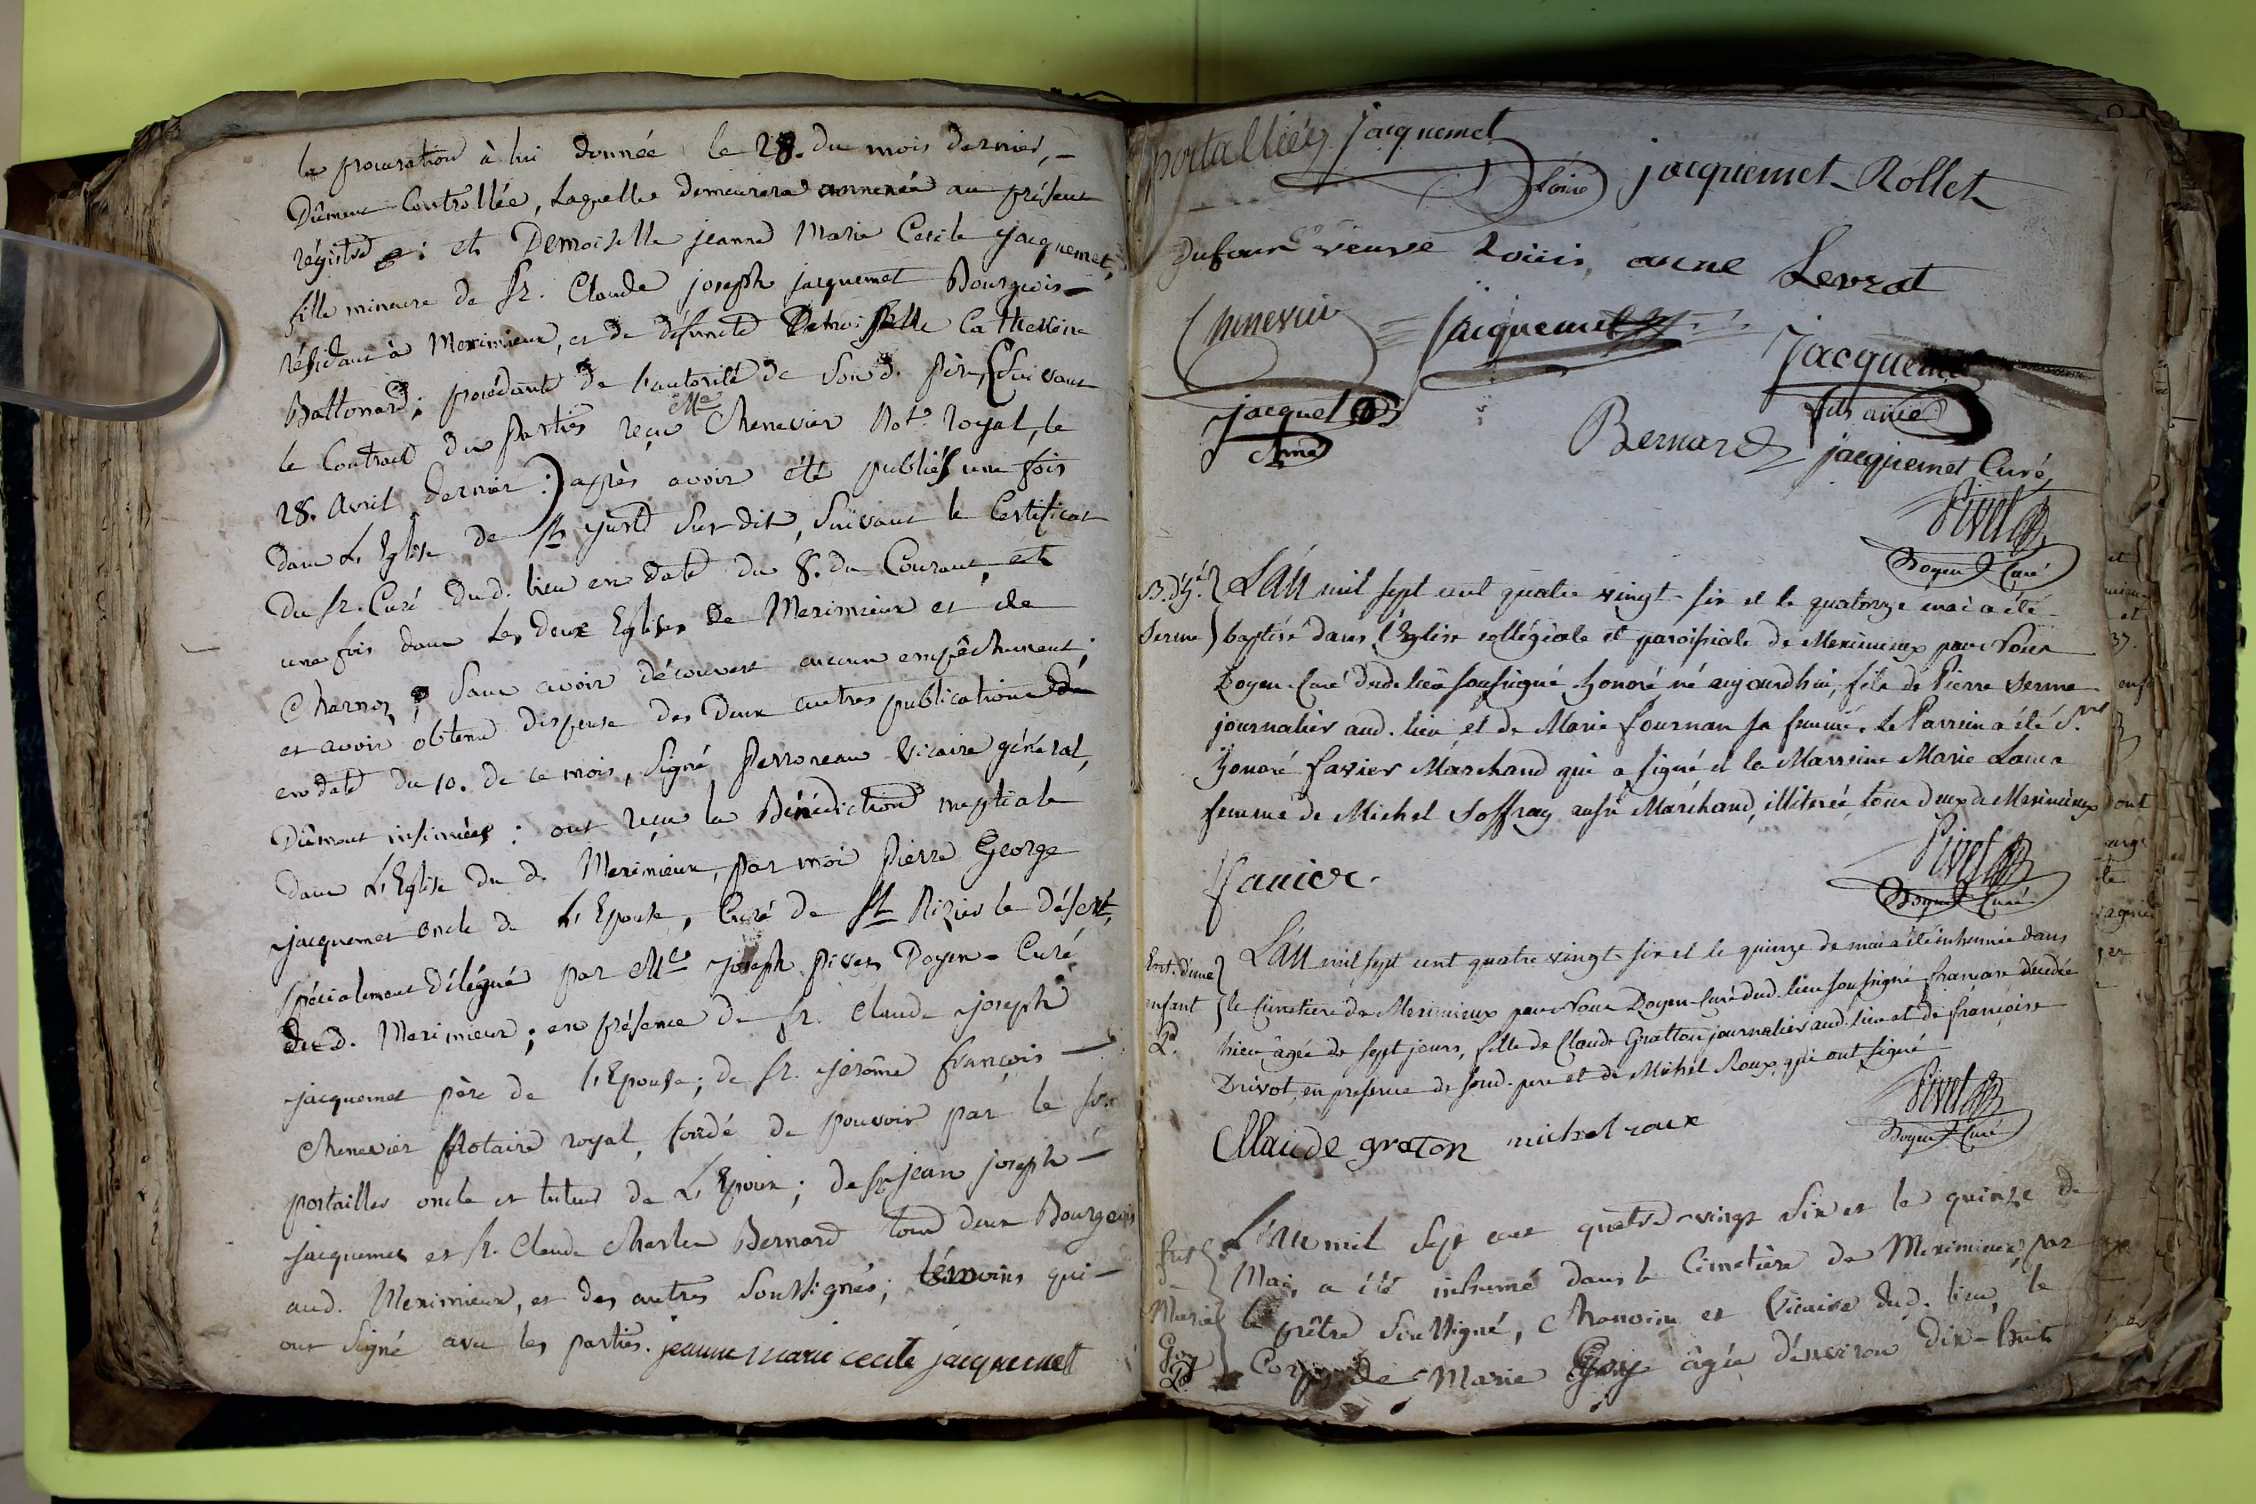 la procuration à lui donnée le 28. du mois dernier, -
Dûment Controllée, Laquelle demeurera annexée au présent
régistre ; et Demoiselle jeanne Marie Cecile jacquemet,
fille mineure de Sr. Claude joseph jacquemet Bourgeois -
résidant à Meximieux, et de défuncte Demoiselle Catherine
Battonard ; procédante de l'autorité de Son d. père, (Suivant
le Contract des parties reçu Me Chenevier Not. royal, le
28. avril dernier :) après avoir été publiés une fois
dans L'Eglise de St just Sus dit, Suivant le Certificat
du Sr. Curé dud. lieu en date du 8. du Courant, et
une fois dans Les deux Eglises de Meximieux et de
Charnoz ; Sans avoir découvert aucun empêchement ;
et avoir obtenu dispense des deux autres publications
en date du 10. de ce mois, Signé Perroneau Vicaire général,
Dûment insinuée : ont reçu la Bénédiction nuptiale
dans L'Eglise du d. Meximieux, par moi pierre George
jacquemet oncle de L'Epouse, Curé de St Nizier le désert,
spécialement délégué par Me joseph pivet, Doyen - Curé
du d. Meximieux ; en présence de Sr. Claude joseph
jacquemet père de l'Epouse ; de Sr. jerôme françois -
Chenevier Notaire royal, fondé de pouvoir par le Sr.
portallier oncle et tuteur de L'Epoux ; de Sr jean joseph -
jacquemet et Sr. Claude Charles Bernard tous deux Bourgeois
aud. Meximieux, et des autres Soussignés ; témoins qui -
ont Signé avec les parties. jeanne marie cecile jacquemet
portallier jacquemet
jacquemet - Rollet
Dufour veuve Louis, anne Levrat
Chenevier jacquemet
jacquemet
fils ainé
jacquet
Bernard jacquemet Curé,
Pivet
Doyen Curé
B. d'h.é
Serme
L'An mil sept cent quatre vingt - six et le quatorze mai a été
baptisé dans l'Eglise collégiale et paroissiale de Meximieux par Nous
Doyen - Curé dud. lieu soussigné honoré né aujourd'hui, fils de Pierre Serme
journalier aud. lieu et de Marie Fournan sa femme. Le Parrein a été Sr.
honoré favier Marchand qui a signé et la Marreine Marie
femme de Michel Soffray aussi Marchand, illiterée, tous deux de Meximieux
favier.
Pivet
Doyen Curé
Ent. d'une
enfant
L'An mil sept cent quatre vingt - six et le quinze de mai a été inhumée dans
le cimetiere de Meximieux par Nous Doyen - Curé dud. lieu soussigné, françoise décédée
hier âgée de sept jours, fille de Claude Gratton journalier aud. lieu et de françoise
Drivot, en présence de sond. pere et de Michel Roux, qui ont signé
Claude graton michel roux
Pivet
Doyen Curé
de
Marie
Goy
L'an mil Sept cent quatre-vingt Six et le quinze de
Mai, a été inhumé dans le Cimetière de Meximieux, par
le prêtre Soussigné, Chanoine et Vicaire dud. lieu, le
Corps de Marie Goy âgée d'environ dix - huit